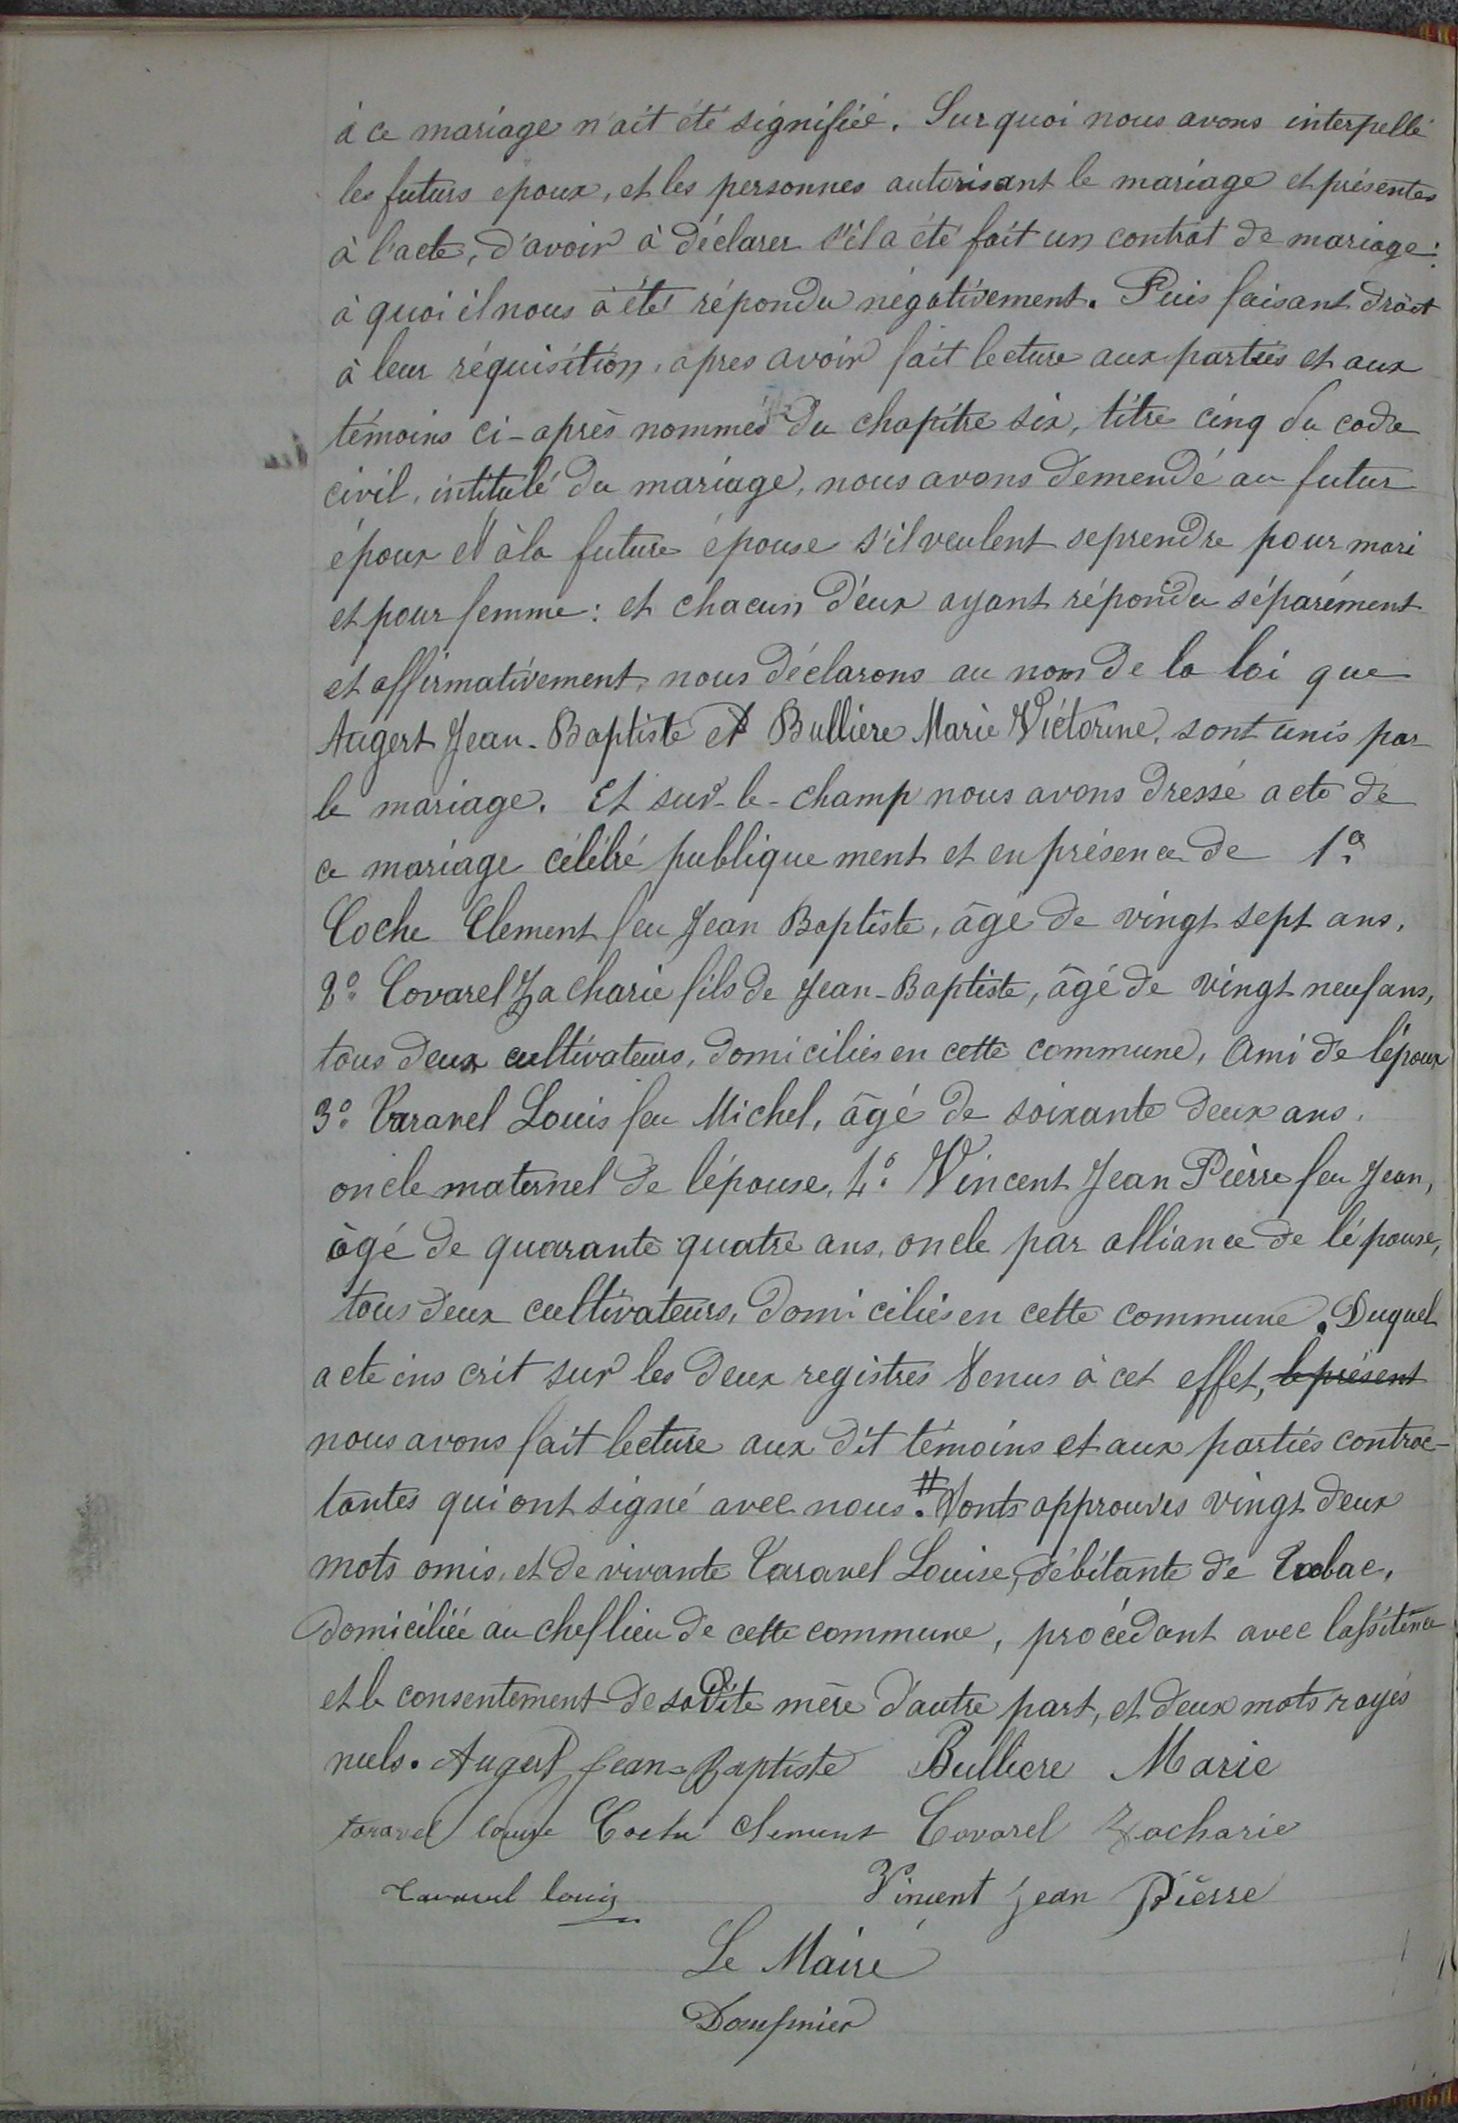 à ce mariage n'ait été signifiée. Sur quoi nous avons interpellé
les futurs époux, et les personnes autorisant le mariage et présentes
à l'acte, d'avoir à déclarer s'il a été fait un contrat de mariage:
à quoi il nous à été répondu négativement. Puis faisant droit
à leur réquisition, apres avoir fait lecture aux parties et aux
témoins ci-après nommés du chapitre six, titre cinq du code
civil, intitulé du mariage, nous avons demendé au futur
époux et à la future épouse s'il veulent se prendre pour mari
et pour femme: et chacun d'eux ayant répondu séparément
et affirmativement, nous déclarons au nom de la loi que
Augert Jean-Baptiste et Bulliere Marie Victorine, sont unis par
le mariage. Et sur-le-champ nous avons dressé acte de
ce mariage célébré publiquement et en présence de 1º
Coche Clement feu Jean Baptiste, âgé de vingt sept ans,
2º Covarel Zacharie fils de Jean-Baptiste, âgé de vingt neuf ans,
tous deux cultivateurs, domiciliés en cette commune, Ami de l'époux
3º Taravel Louis feu Michel, âgé de soixante deux ans,
oncle maternel de l'épouse, 4º Vincent Jean Pierre feu Jean,
âgé de quarante quatre ans, oncle par alliance de l'épouse,
tous deux cultivateurs, domiciliés en cette commune. Duquel
acte inscrit sur les deux registres tenus à cet effet, le présent
nous avons fait lecture aux dit témoins et aux parties contrac-
tantes qui ont signé avec nous. # Sont approuvés vingt deux
mots omis, et de vivante Taravel Louise, débitante de Tabac,
domiciliée au chef lieu de cette commune, procédant avec l'assitence
et le consentement de sa dite mère d'autre part, et deux mots rayés
nuls. Augert Jean-Baptiste Bulliere Marie
taravel louise Coche Clement Covarel Zacharie
Taravel louis Vincent Jean Pierre
Le Maire